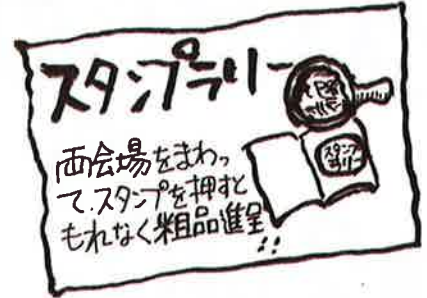 スタンプラリー
両会場をまわっ
て、スタンプを押すと
もれなく粗品進呈!!
スタンプ
ラリー